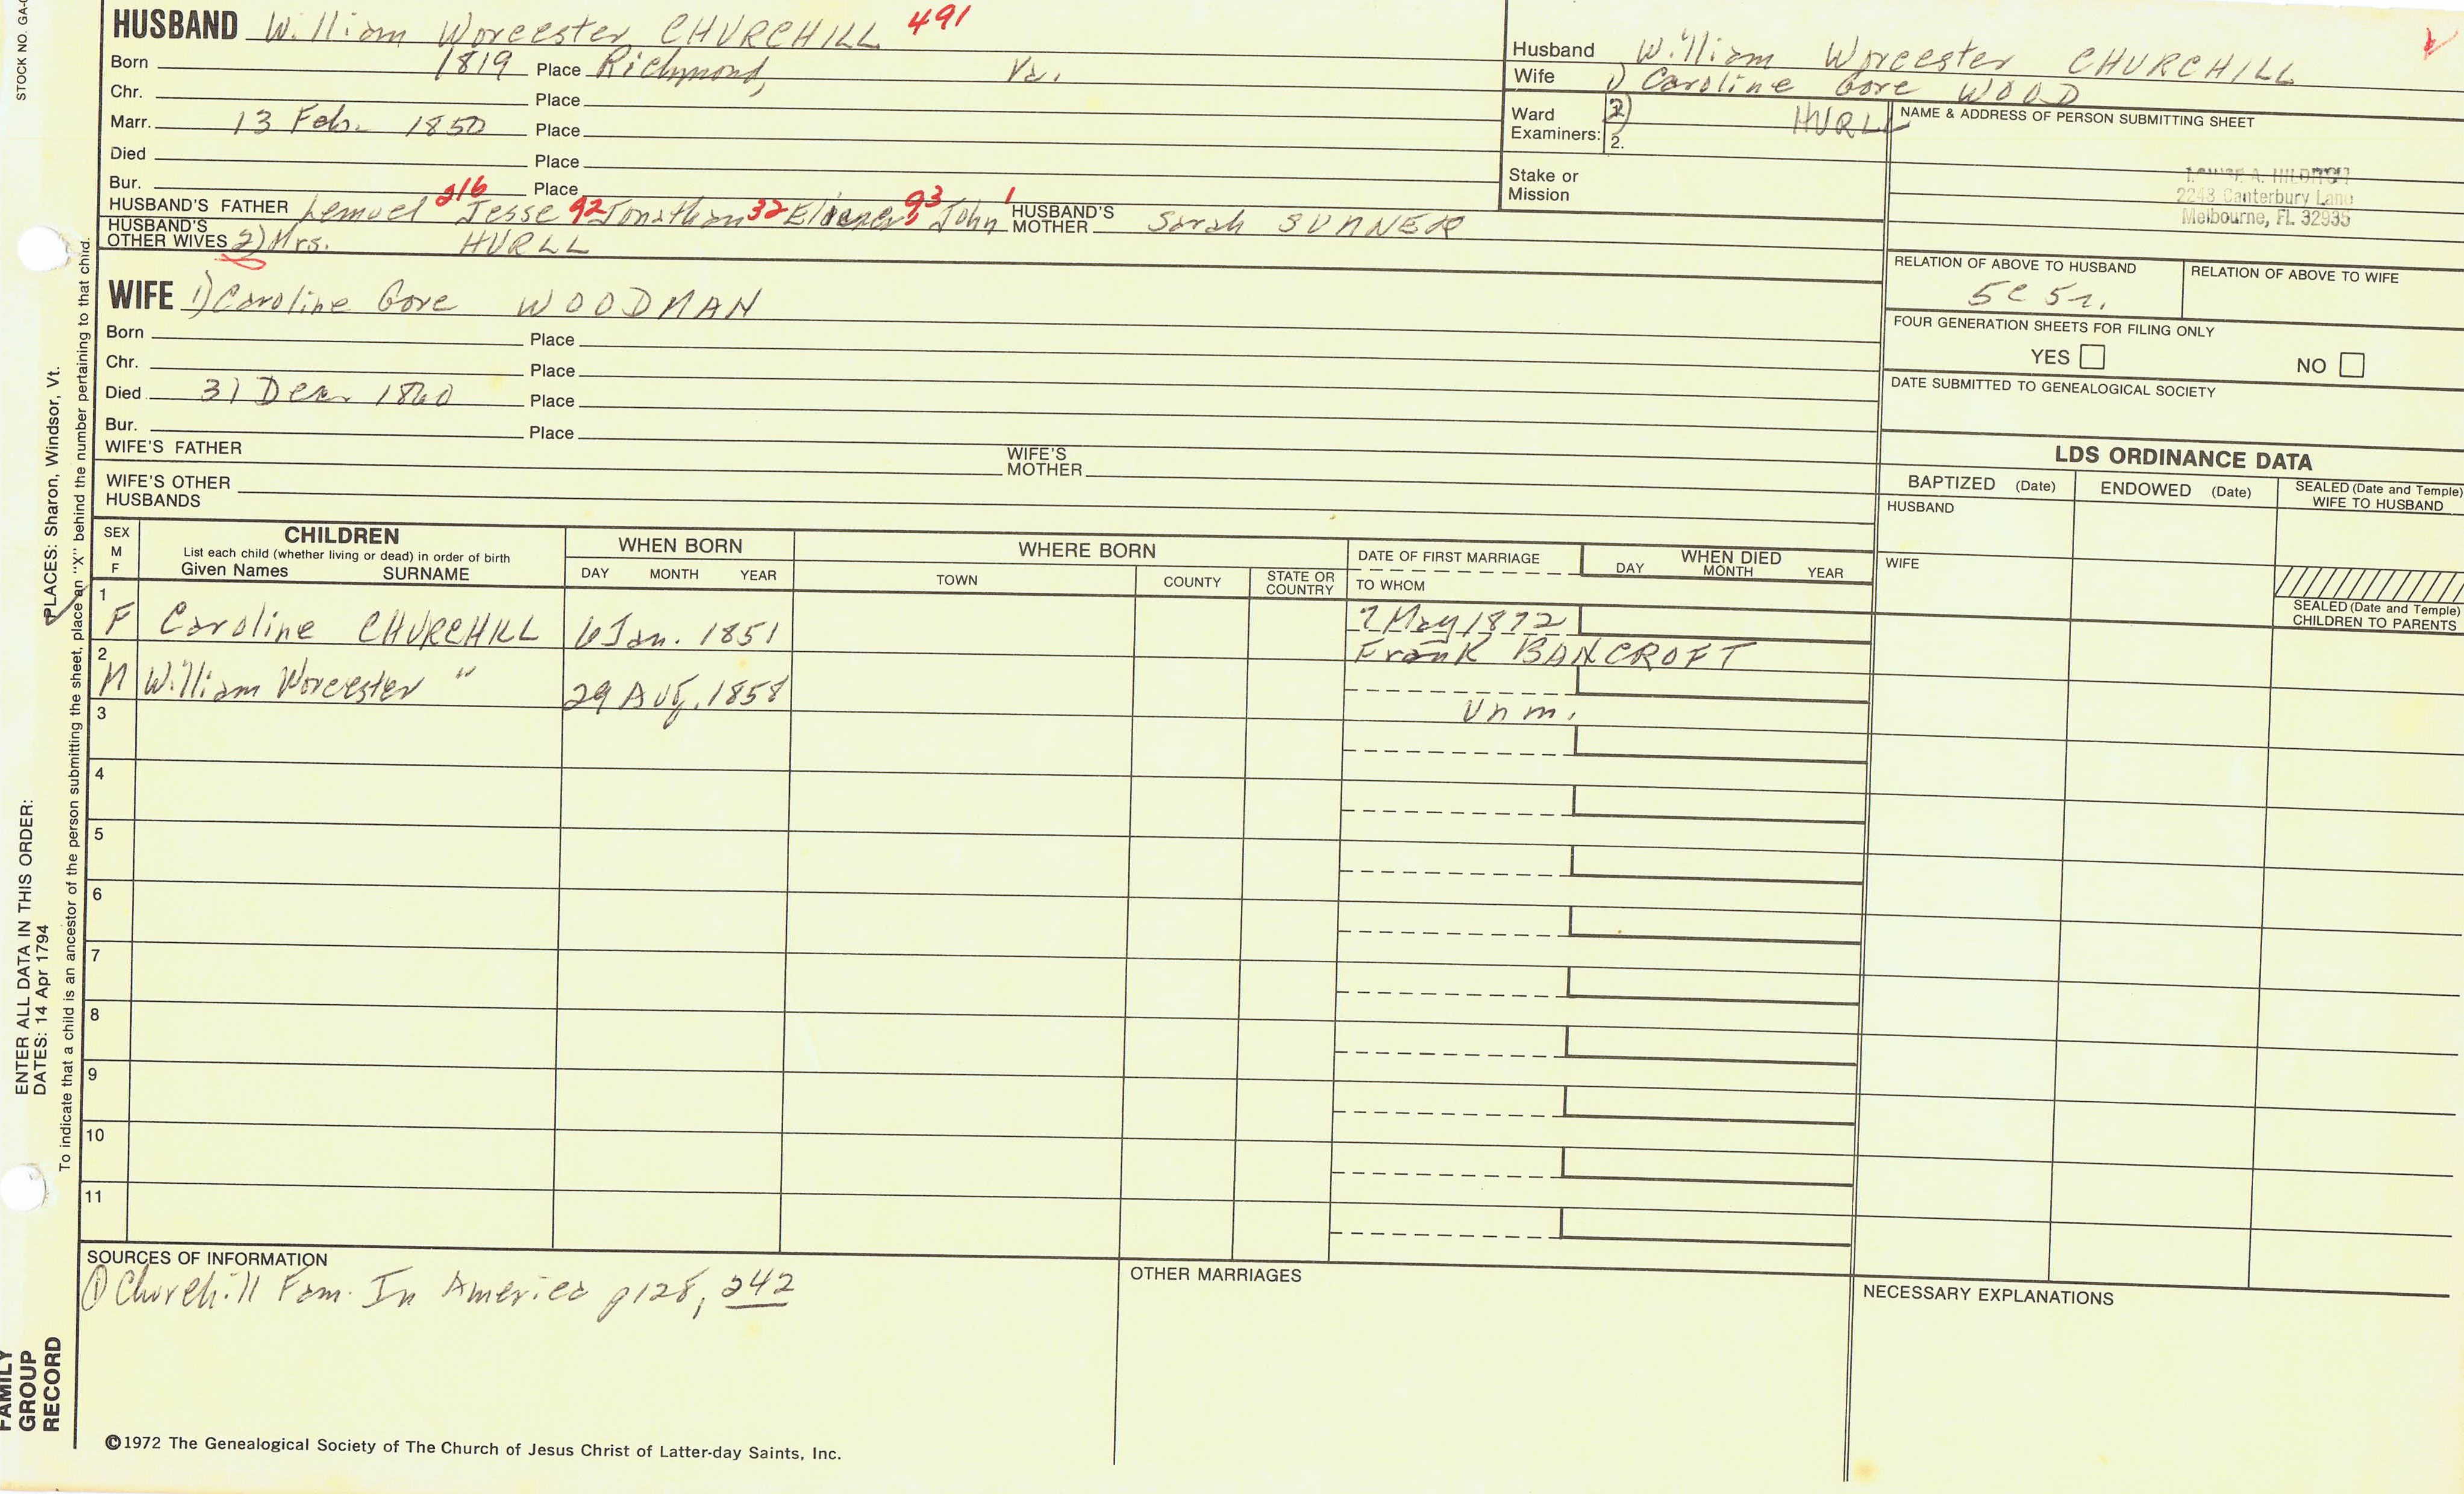 STOCK NO. GA-
HUSBAND William Worcester CHURCHILL 491
Born 1819 Place Richmond, Va.
Chr. Place
Marr. 13 Feb. 1850 Place
Died Place
Bur. Place
HUSBAND'S FATHER Lemuel 216 Jesse 92 Jonathan 32 Eleazer 93 John 1 HUSBAND'S MOTHER Sarah SUNNER
HUSBAND'S OTHER WIVES 2) Mrs. HURLL
WIFE 1) Caroline Gore WOODMAN
Born Place
Chr. Place
Died 31 Dec. 1860 Place
Bur. Place
WIFE'S FATHER WIFE'S MOTHER
WIFE'S OTHER HUSBANDS
Husband William Worcester CHURCHILL
Wife 1) Caroline Gore WOOD
Ward Examiners: 2) HURLL
2.
Stake or Mission
NAME & ADDRESS OF PERSON SUBMITTING SHEET
A. HILDITCH
2248 Canterbury Lane
Melbourne, FL 32935
RELATION OF ABOVE TO HUSBAND RELATION OF ABOVE TO WIFE
5c 5r.
FOUR GENERATION SHEETS FOR FILING ONLY
YES NO
DATE SUBMITTED TO GENEALOGICAL SOCIETY
LDS ORDINANCE DATA
BAPTIZED (Date) ENDOWED (Date) SEALED (Date and Temple) WIFE TO HUSBAND
HUSBAND
WIFE
SEALED (Date and Temple) CHILDREN TO PARENTS
SEX M F CHILDREN WHEN BORN WHERE BORN DATE OF FIRST MARRIAGE WHEN DIED
List each child (whether living or dead) in order of birth
Given Names SURNAME DAY MONTH YEAR TOWN COUNTY STATE OR COUNTRY TO WHOM DAY MONTH YEAR
1 F Caroline CHURCHILL 6 Jan. 1851 7 May 1872
Frank BANCROFT
2 M William Worcester " 29 Aug. 1858
Unm.
3
4
5
6
7
8
9
10
11
SOURCES OF INFORMATION
① Churchill Fam. In America p128, 242
OTHER MARRIAGES
NECESSARY EXPLANATIONS
©1972 The Genealogical Society of The Church of Jesus Christ of Latter-day Saints, Inc.
FAMILY
GROUP
RECORD
ENTER ALL DATA IN THIS ORDER:
DATES: 14 Apr 1794
PLACES: Sharon, Windsor, Vt.
To indicate that a child is an ancestor of the person submitting the sheet, place an "X" behind the number pertaining to that child.